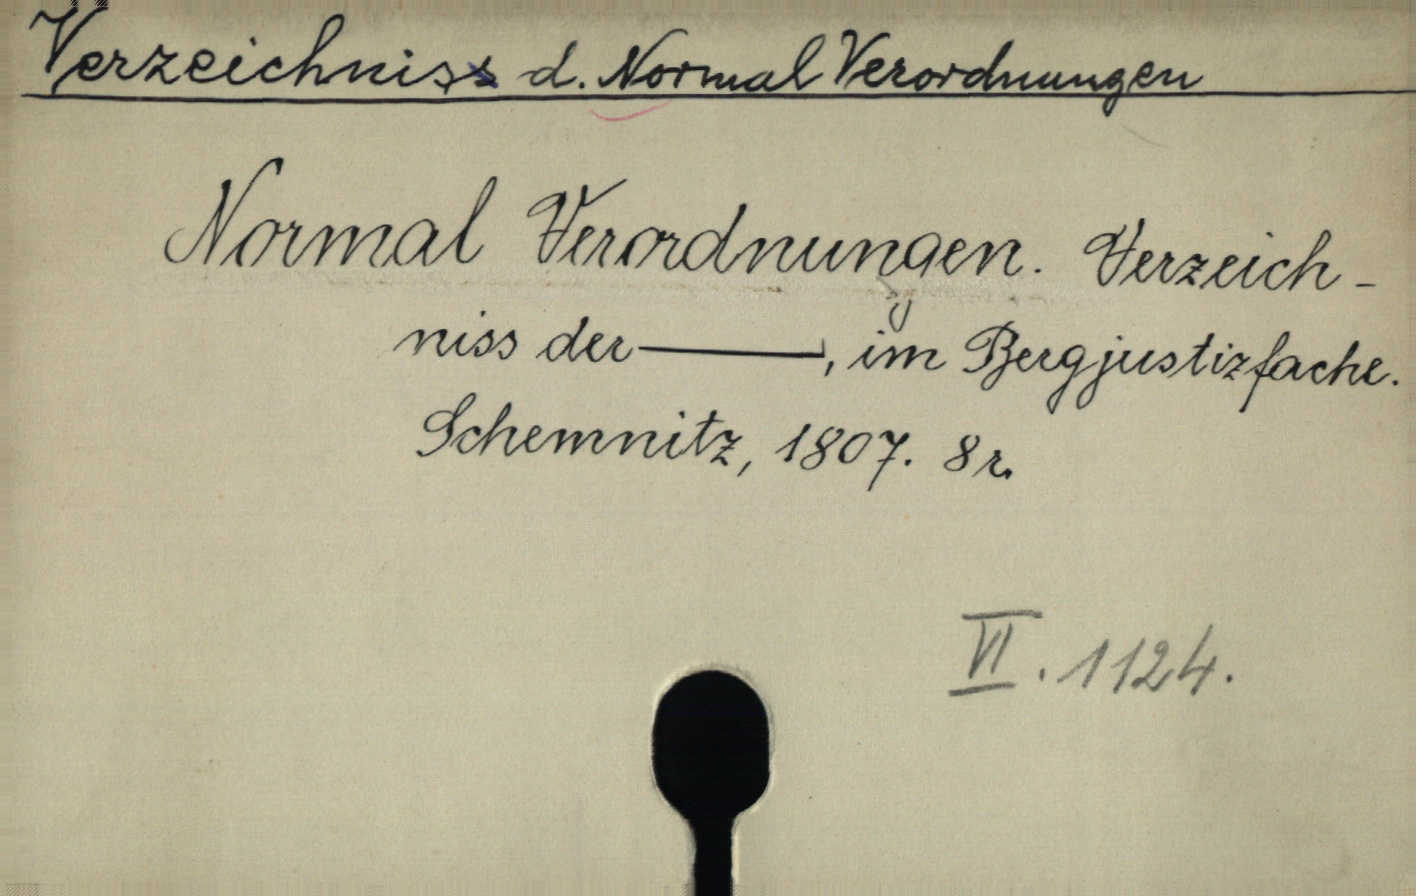 Verzeichniss d. Normal Verordnungen
Normal Verordnungen. Verzeich-
niss der ———, im Bergjustizfache.
Schemnitz, 1807. 8r.
VI. 1124.